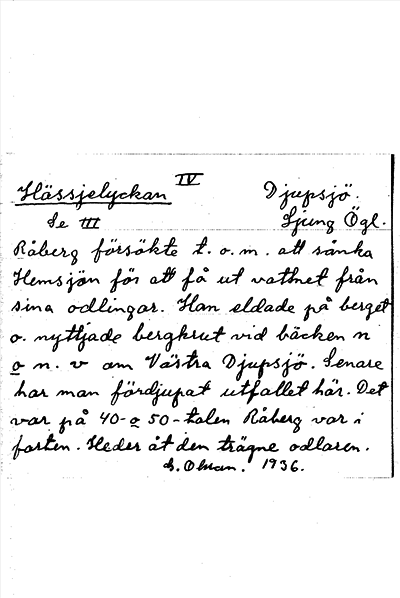 IV
Hässjelyckan Djupsjö.
Se III Ljung Ögl.
Råberg försökte t.o.m. att sänka
Hemsjön för att få ut vattnet från
sina odlingar. Han eldade på berget
o. nyttjade bergkrut vid bäcken n
o n. v om Västra Djupsjö. Senare
har man fördjupat utfallet här. Det
var på 40- o 50-talen Råberg var i
farten. Heder åt den trägne odlaren.
1936.